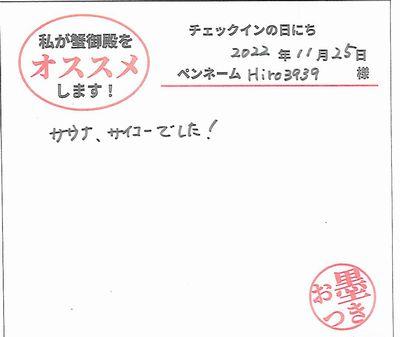 私が蟹御殿を
オススメ
します！
チェックインの日にち
2022年11月25日
ペンネーム Hiro3939 様
サウナ、サイコーでした！
お墨
つき